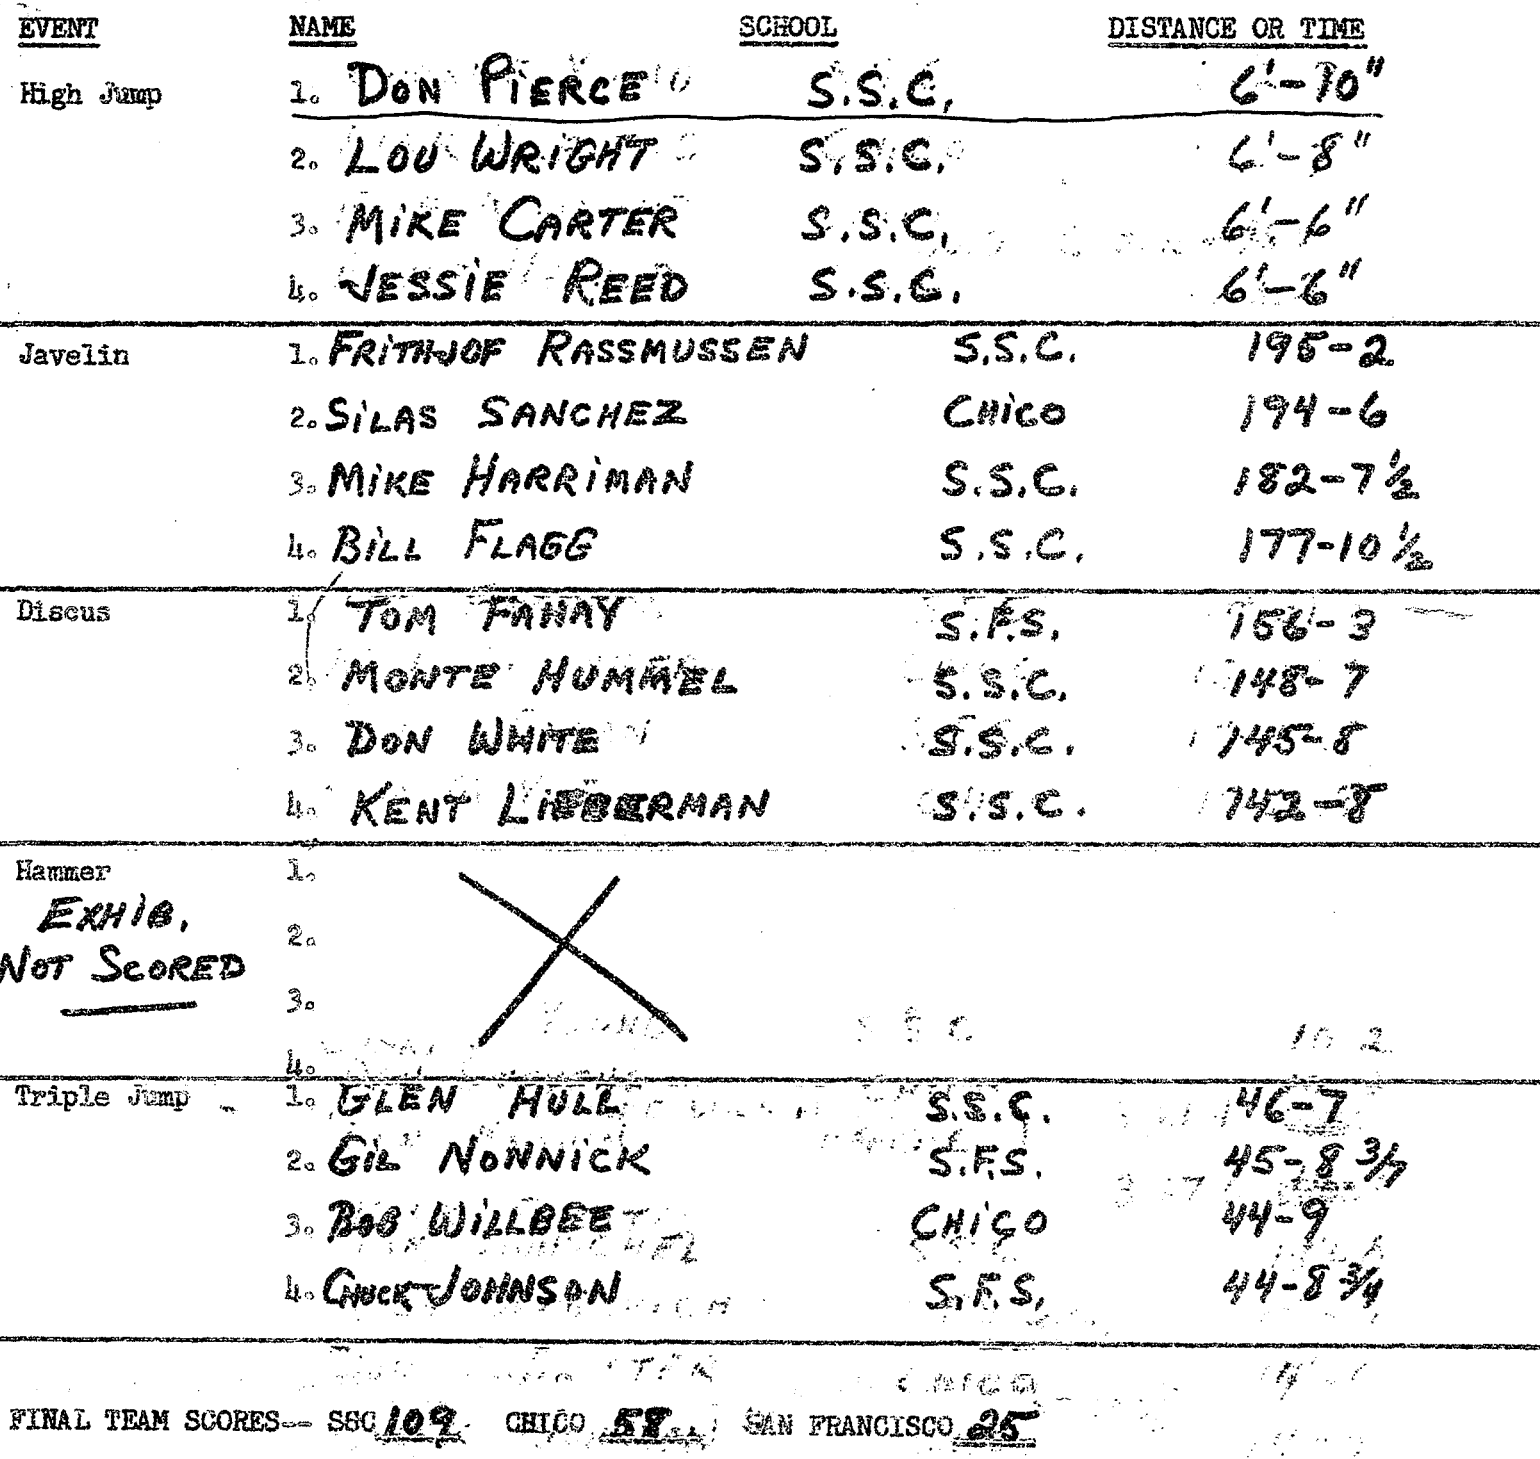 EVENT NAME SCHOOL DISTANCE OR TIME
High Jump 1. DON PIERCE S.S.C. 6'-10"
2. LOU WRIGHT S.S.C. 6'-8"
3. MIKE CARTER S.S.C. 6'-6"
4. JESSIE REED S.S.C. 6'-6"
Javelin 1. FRITHJOF RASSMUSSEN S.S.C. 195-2
2. SILAS SANCHEZ CHICO 194-6
3. MIKE HARRIMAN S.S.C. 182-7 1/2
4. BILL FLAGG S.S.C. 177-10 1/2
Discus 1. TOM FAHAY S.F.S. 156-3
2. MONTE HUMMEL S.S.C. 148-7
3. DON WHITE S.S.C. 145-8
4. KENT LIEBERMAN S.S.C. 142-8
Hammer 1.
EXHIB. 2.
NOT SCORED
3.
4.
Triple Jump 1. GLEN HULL S.S.C. 46-7
2. GIL NONNICK S.F.S. 45-8
3. BOB WILLBEE CHICO 44-9
4. CHUCK JOHNSON S.F.S. 44-8 3/4
FINAL TEAM SCORES-- SSC 109 CHICO 58 SAN FRANCISCO 25